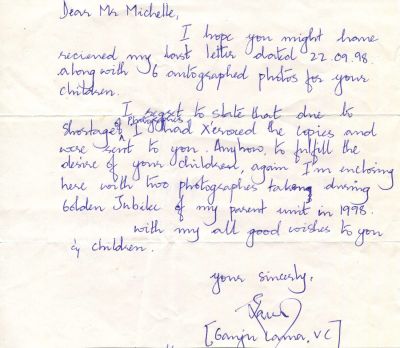 Dear Mr Michelle,
I hope you might have
recieved my last letter dated 22.09.98.
along with 6 autographed photos for your
children.
I regret to state that due to
shortage of Photographs I had X'eroxed the copies and
were sent to you. Anyhow, to fulfill the
desire of your children, again I'm enclosing
here with two photographes taken during
Golden Jubilee of my parent unit in 1998.
with my all good wishes to you
& children.
yours sincerly,
[Ganju Lama, VC]